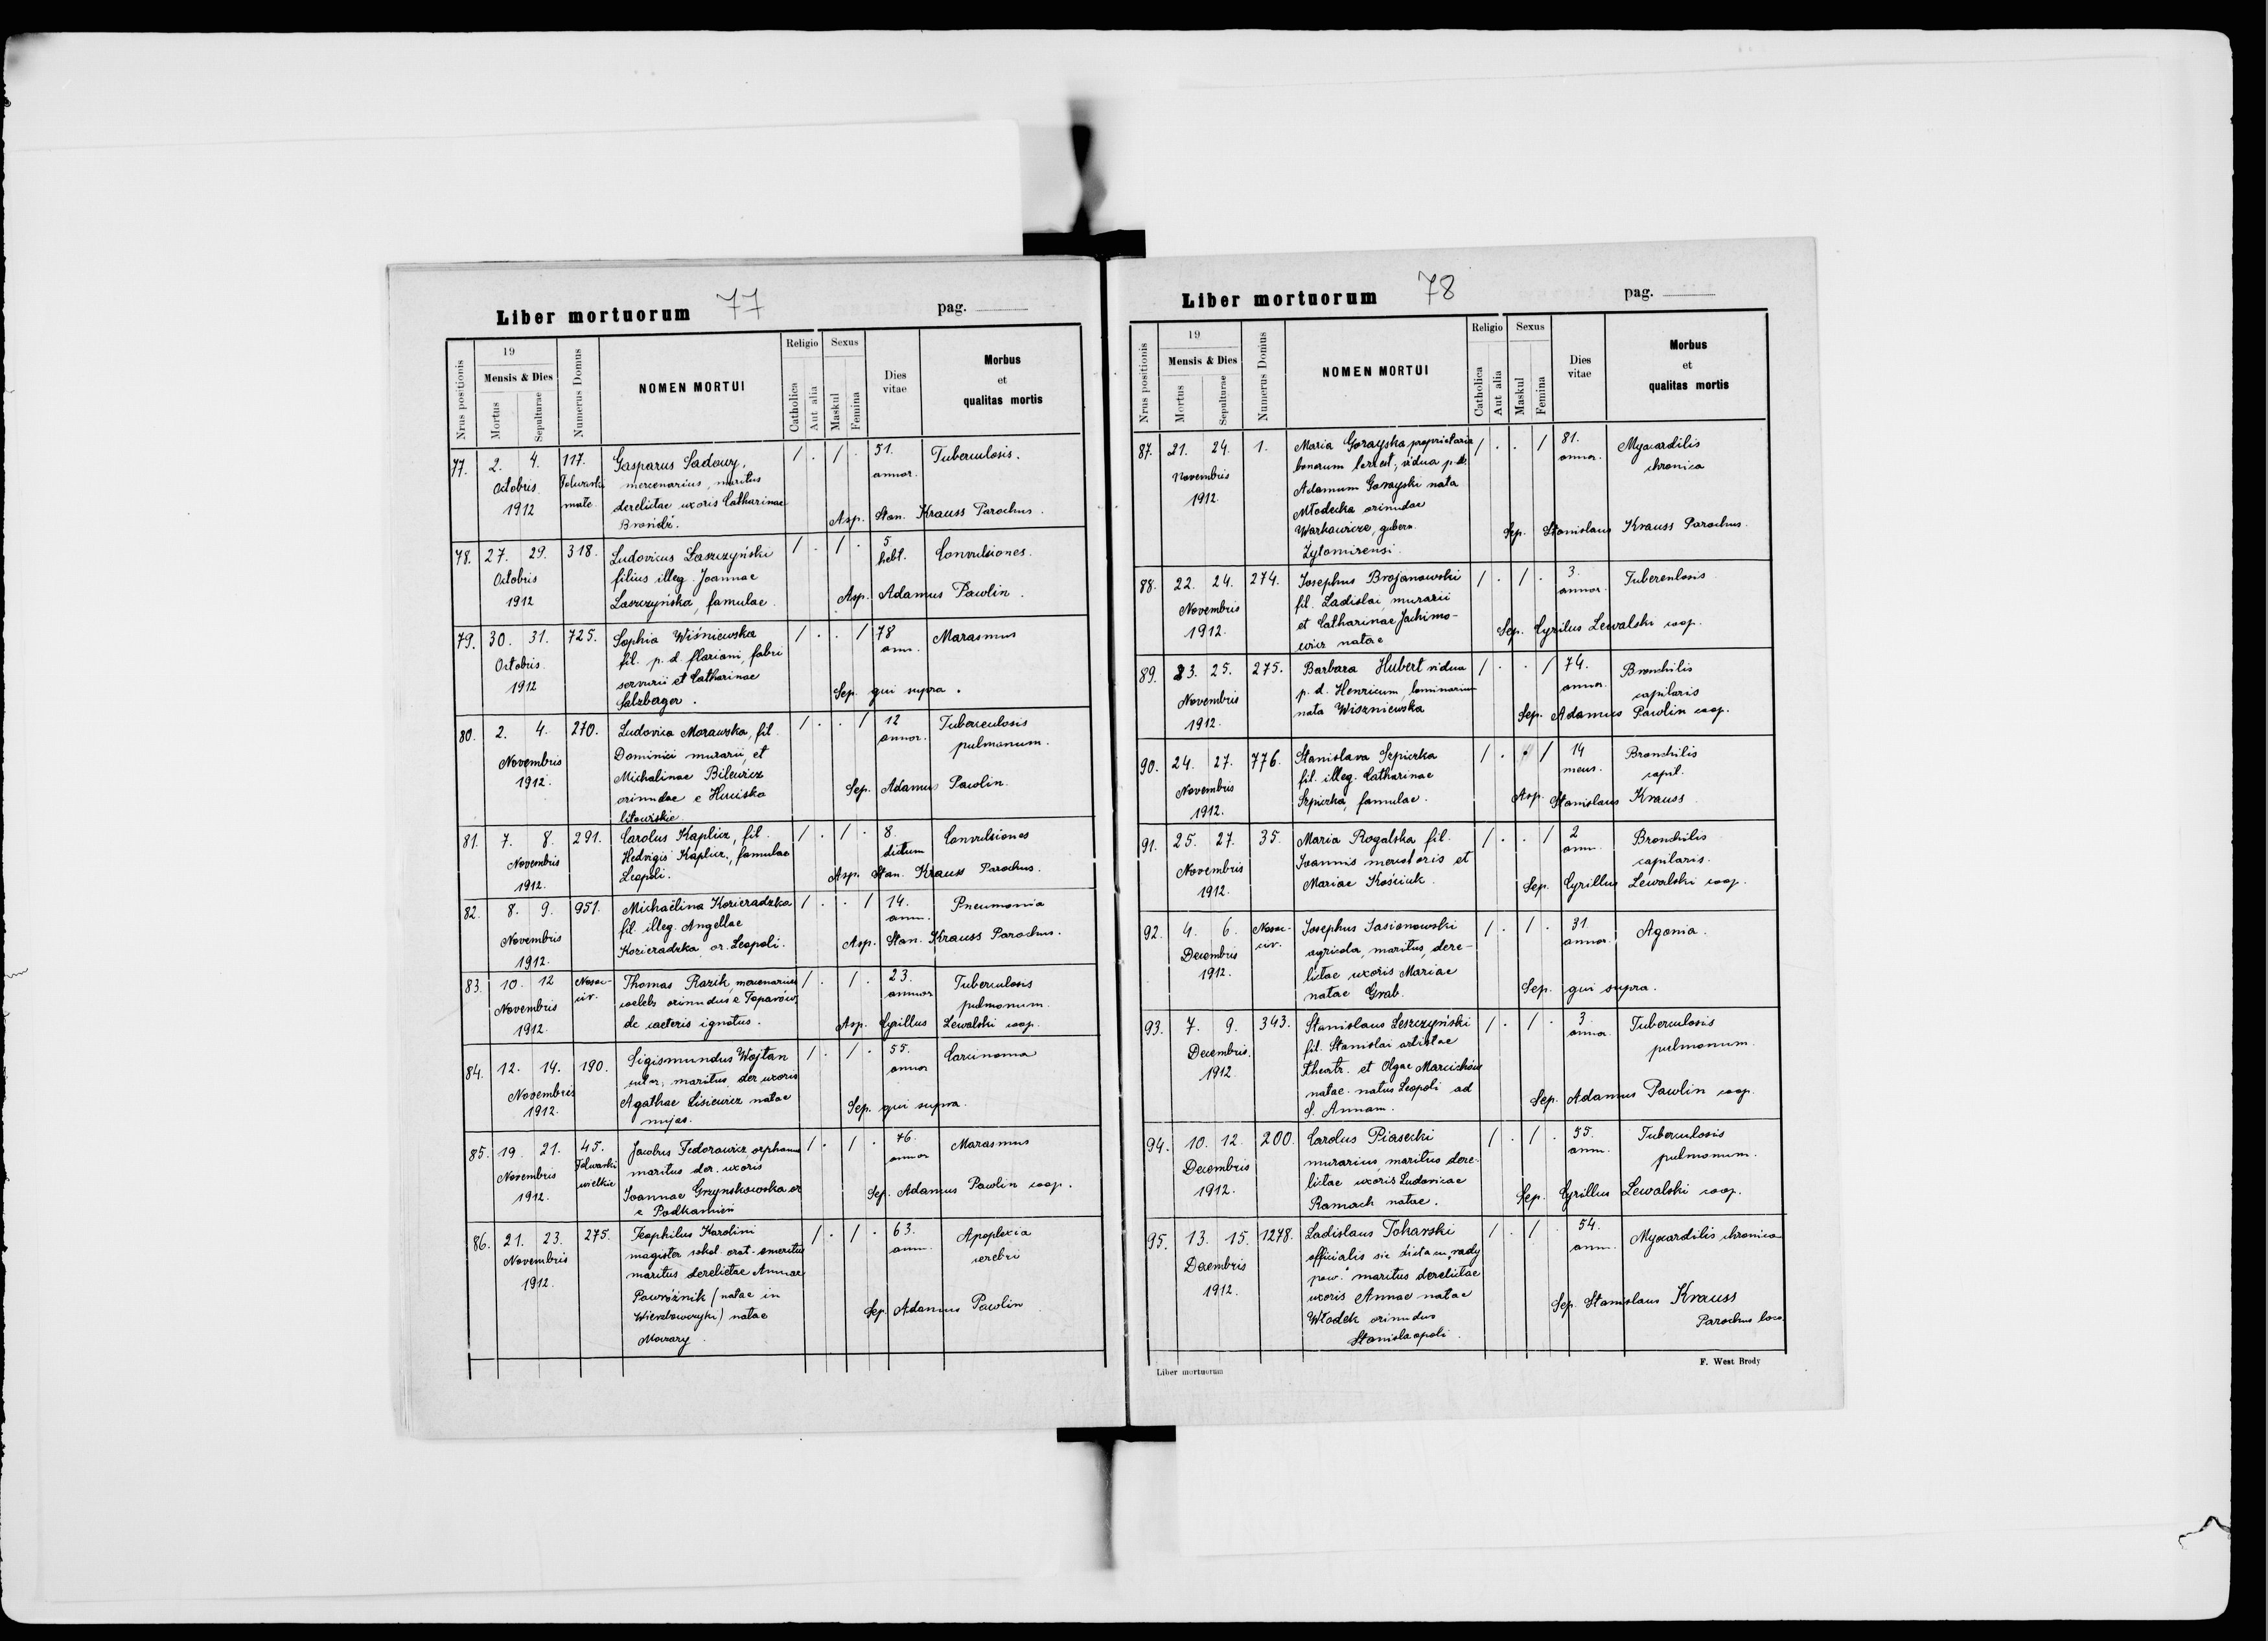 Liber mortuorum 77 pag.
Nrus positionis
19
Mensis & Dies
Mortus
Sepulturae
Numerus Domus
NOMEN MORTUI
Religio
Catholica
Aut alia
Sexus
Maskul
Femina
Dies vitae
Morbus et qualitas mortis
77. 2. 4. 117. Gasparus Sadowy, / . / . 51. Tuberculosis.
Octobris Folwarki mercenarius, maritus annor.
1912 małe derelictae uxoris Catharinae
Asp. Stan. Krauss Parochus.
78. 27. 29. 318. Ludovicus Laszczyński / . / . 5 Convulsiones.
Octobris filius illeg. Joannae hebt.
1912 Laszczyńska, famulae. Asp. Adamus Pawlin.
79. 30. 31. 725. Sophia Wiśniewska / . . / 78 Marasmus
Octobris fil. p. d. floriani, fabri ann.
1912 serrurii et Catharinae Sep. qui supra.
Salzberger.
80. 2. 4. 270. Ludovica Morawska, fil. / . . / 12 Tuberculosis
Novembris Dominici murarii, et annor. pulmonum.
1912. Michalinae Bilewicz
oriundae e Huciska Sep. Adamus Pawlin.
litowiskie.
81. 7. 8. 291. Carolus Kaplicz, fil. / . / . 8. Convulsiones
Novembris Hedvigis Kaplicz, famulae dierum
1912. Leopoli. Asp. Stan. Krauss Parochus.
82. 8. 9. 951. Michaëlina Kozieradzka / . . / 14. Pneumonia
Novembris fil. illeg. Angellae ann.
1912. Kozieradzka, or. Leopoli. Asp. Stan. Krauss Parochus.
83. 10. 12 Nosoc- Thomas Razik, mercenarius / . / . 23. Tuberculosis
Novembris civ. coelebs oriundus e Toporów, annor pulmonum.
1912. de caeteris ignotus. Asp. Cyrillus Lewalski coop.
84. 12. 14. 190. Sigismundus Wojtan / . / . 55. Carcinoma
Novembris sutor, maritus, der. uxoris annor
1912. Agathae Lisiewicz natae Sep. qui supra.
85. 19. 21. 45. Jacobus Fedorowicz, orphanus / . / . 76. Marasmus
Novembris Folwarki maritus der. uxoris annor
1912. wielkie Joannae or. Sep. Adamus Pawlin coop.
e Podkamień
86. 21. 23. 275. Teophilus Karolini / . / . 63. Apoplexia
Novembris magister schol. emeritus ann. cerebri
1912. maritus derelictae Annae
Powróźnik (natae in Sep. Adamus Pawlin
natae
Liber mortuorum 78 pag.
Nrus positionis
19
Mensis & Dies
Mortus
Sepulturae
Numerus Domus
NOMEN MORTUI
Religio
Catholica
Aut alia
Sexus
Maskul
Femina
Dies vitae
Morbus et qualitas mortis
87. 21. 24. 1. Maria Gorayska, proprietaria / . . / 81. Myocarditis
Novembris bonorum terrest., vidua p. annor. chronica
1912. Adamum Gorayski nata
Młodecka oriundae
Warkowicze, gubern. Sep. Stanislaus Krauss Parochus.
Żytomirensi.
88. 22. 24. 274. Josephus Brojanowski / . / . 3. Tuberculosis
Novembris fil. Ladislai, murarii annor.
1912. et Catharinae Jachimo- Sep. Cyrilus Lewalski coop.
wicz natae
89. 23. 25. 275. Barbara Hubert vidua / . . / 74. Bronchitis
Novembris p. d. Henricum, annor. capilaris
1912. nata Wiszniewska Sep. Adamus Pawlin coop.
90. 24. 27. 776. Stanislava Szpiczka / . . / 14 Bronchitis
Novembris fil. illeg. Catharinae mens. capil.
1912. Szpiczka, famulae. Asp. Stanislaus Krauss.
91. 25. 27. 35. Maria Rogalska fil. / . . / 2 Bronchitis
Novembris Joannis mercatoris et ann. capilaris.
1912. Mariae Kościuk. Sep. Cyrillus Lewalski coop.
92. 4. 6. Nosoc- Josephus Jasionowski / . / . 31. Agonia.
Decembris civ. agricola, maritus, dere- annor.
1912. lictae uxoris Mariae
natae Grab. Sep. qui supra.
93. 7. 9. 343. Stanislaus Leszczyński / . / . 3. Tuberculosis
Decembris. fil. Stanislai artistae annor. pulmonum.
1912 theatr. et Olgae
natae. natus Leopoli ad Sep. Adamus Pawlin coop.
S. Annam.
94. 10. 12. 200. Carolus Piasecki / . / . 55. Tuberculosis
Decembris murarius, maritus dere- ann. pulmonum.
1912. lictae uxoris Ludovicae
Ramach natae. Sep. Cyrillus Lewalski coop.
95. 13. 15. 1278. Ladislaus Tokarski / . / . 54. Myocarditis chronica
Decembris officialis sic dictaeu „rady ann.
1912. pow." maritus derelictae
uxoris Annae natae Sep. Stanislaus Krauss
Włodek oriundus Parochus loco.
Stanislaopoli.
Liber mortuorum
F. West Brody